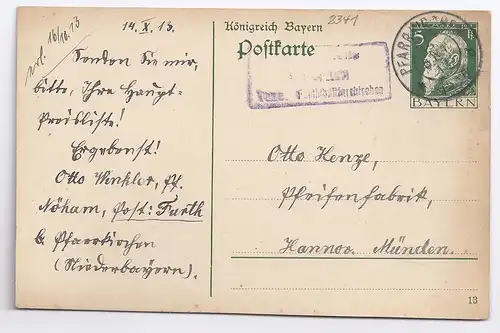 erl. 16/10.13
14. X. 13.
Senden Sie mir,
bitte, Ihre Haupt-
Preisliste!
Ergebenst!
Otto Winkler, Pf.
Nöham, Post: Furth
b. Pfarrkirchen
(Niederbayern).
Königreich Bayern
2341
Postkarte
5 Pf.
BAYERN
Otto Henze,
Pfeifenfabrik,
Hannov. Münden.
13